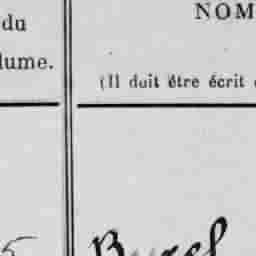 du
lume.
NOM
(Il doit être écrit
5